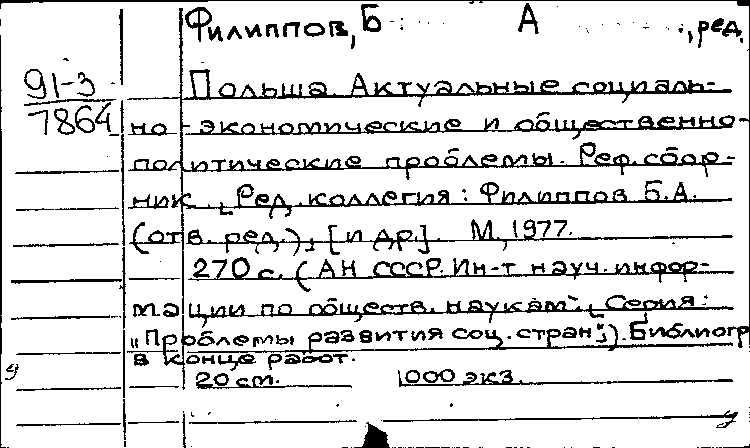 Филиппов, Б А , ред.
91-3
7864
Польша Актуальные социаль-
но-экономические и общественно-
политические проблемы. Реф. сбор-
ник. [Ред. коллегия: Филиппов Б.А.
(отв. ред.), [и др.]. М, 1977.
270 с. (АН СССР. Ин-т науч. инфор-
мации по обществ. наукам. [Серия:
„Проблемы развития соц. стран"]). Библиогр
в конце работ.
20 см. 1000 экз.